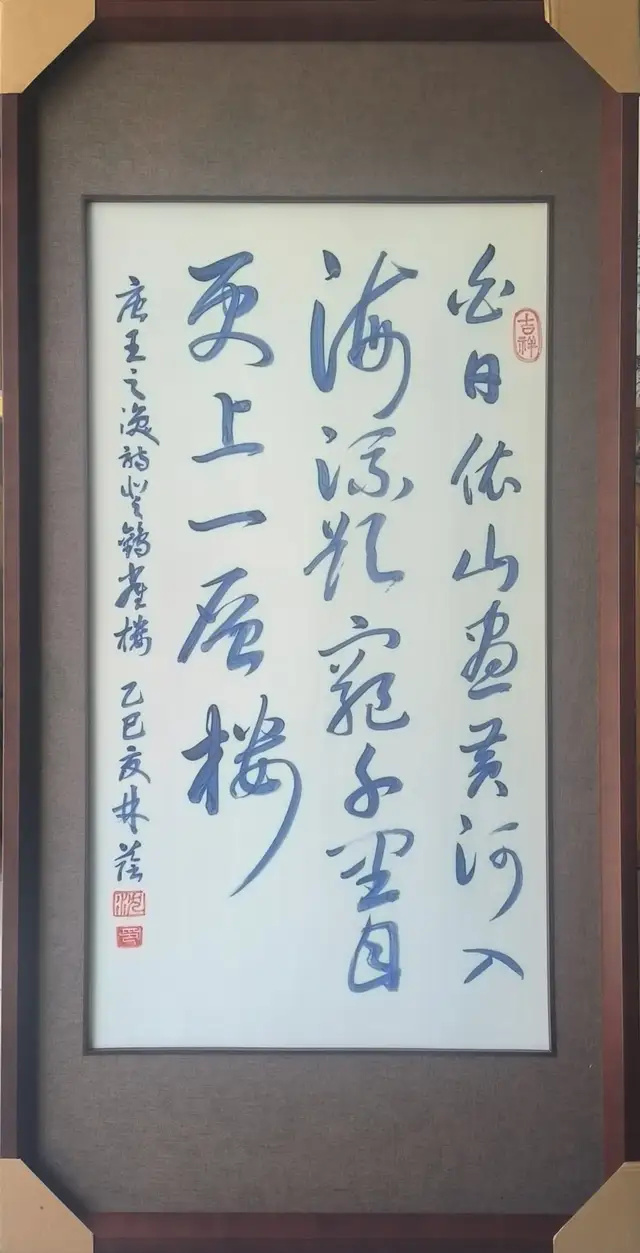 白日依山尽黄河入
海流欲穷千里目
更上一层楼
唐王之涣诗登鹳雀楼 乙巳夏林荫
吉祥